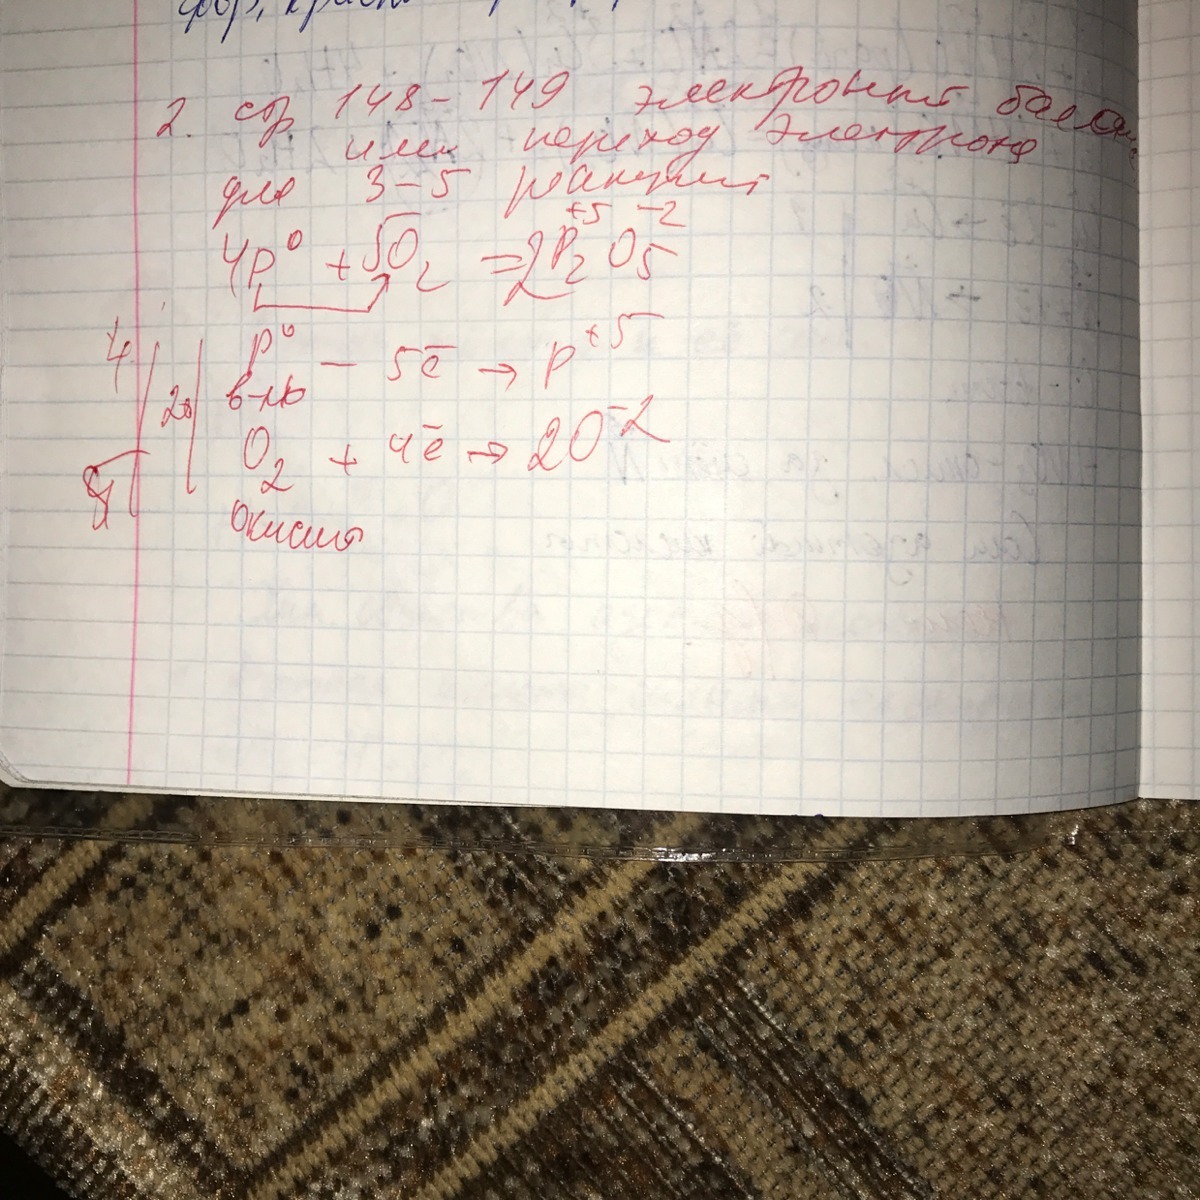 фор, красн
2. стр 148-149 электронный балан
или переход электронов
для 3-5 реакций
4P⁰ + 5O₂ = 2P₂⁺⁵O₅⁻²
4 | 20 | P⁰ - 5ē → P⁺⁵
в-ль
5 | O₂ + 4ē → 2O⁻²
окисль